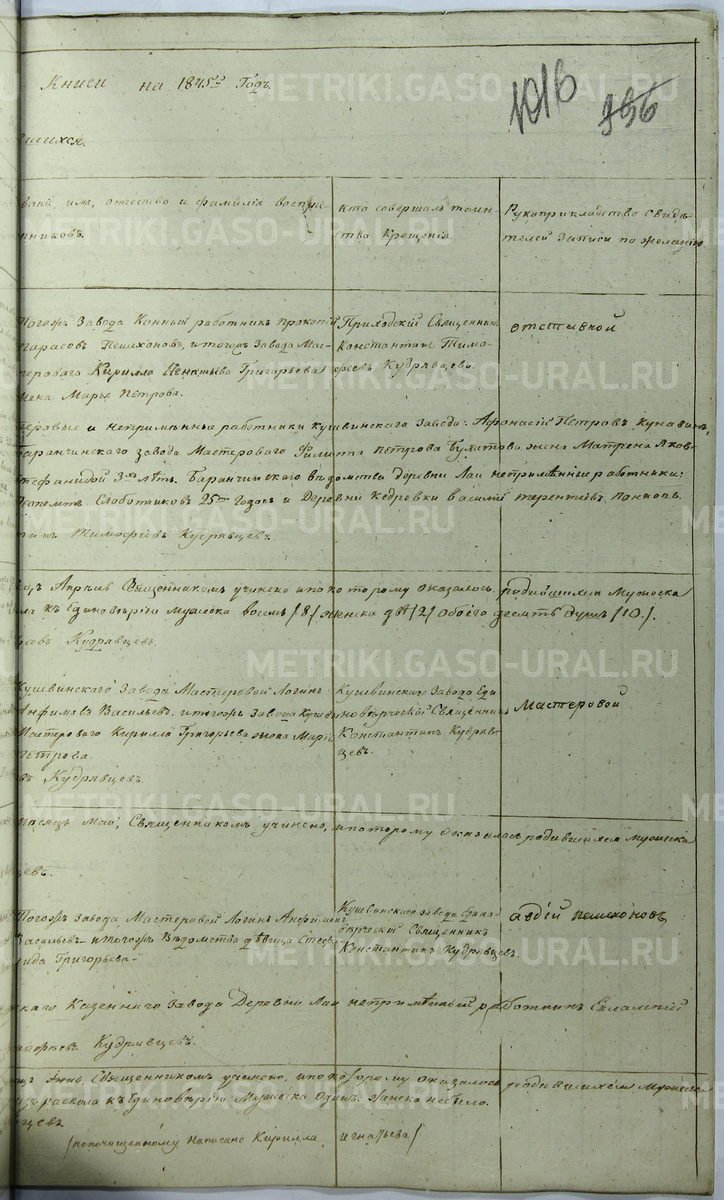 METRIKI.GASO-URAL.RU
Книги на 1845й Годъ.
1016
856
шихся.
вание, имя, отчество и фамилія воспріе-
мниковъ.
Кто совершалъ таин-
ство Крещенія.
Рукоприкладство свидѣ-
телей записи по желанію
Тогожъ Завода Конный работникъ прокопій
Тарасовъ Пешехоновъ, и тогожъ Завода Мас-
тероваго Кирилла Игнатьева Григорьева
жена Марья Петрова.
Приходскій Священникъ
Константинъ Тимо-
феевъ Кудрявцевъ.
отставной
теровые и непримѣнные работники Кушвинскаго Завода: Афонасій Петровъ
Баранчинскаго завода Мастероваго Филиппа петрова Булатова жена Матрена Яков-
Стефанидой 3хъ лѣтъ. Баранчинскаго вѣдомства деревни Лаи непримѣнные работники:
Слоботчиковъ 25ти Годовъ и Деревни Кедровки василий терентьевъ
Тимофеевъ Кудрявцевъ.
Апрѣль Священникомъ учинено и по которому оказалось родившихся Мужеска
къ Единовѣрію мужеска восемь /8/ женска двѣ /2/ обоего десять душъ /10/.
Кудрявцевъ.
Кушвинскаго Завода Мастеровой Логинъ
Анфимовъ Васильевъ. и тогожъ Завода
Мастероваго Кирилла Григорьева жена Марія
Петрова.
Кудрявцевъ.
Кушвинскаго Завода Еди-
новѣрческій Священникъ
Константинъ Кудряв-
цевъ.
Мастеровой
мѣсяцъ Май, Священникомъ учинено, и по которому оказалось родившихся Мужеска
цевъ.
Тогожъ завода Мастеровой Логинъ Анфимовъ
Васильевъ и тогожъ Вѣдомства дѣвица Стефа-
нида Григорьева.
Кушвинскаго завода Едино-
вѣрческій Священникъ
Константинъ Кудрявцевъ.
авдій пешехоновъ
скаго Казеннаго Завода Деревни Лаи непримѣнный работникъ Евлампій
Кудрявцевъ.
Іюнь, Священникомъ учинено, и по которому оказалось родившихся Мужеска
изъ раскола къ Единовѣрію Мужеска Одинъ. женска небыло.
цевъ.
/поПочищенному написано Кирилла игнатьева/